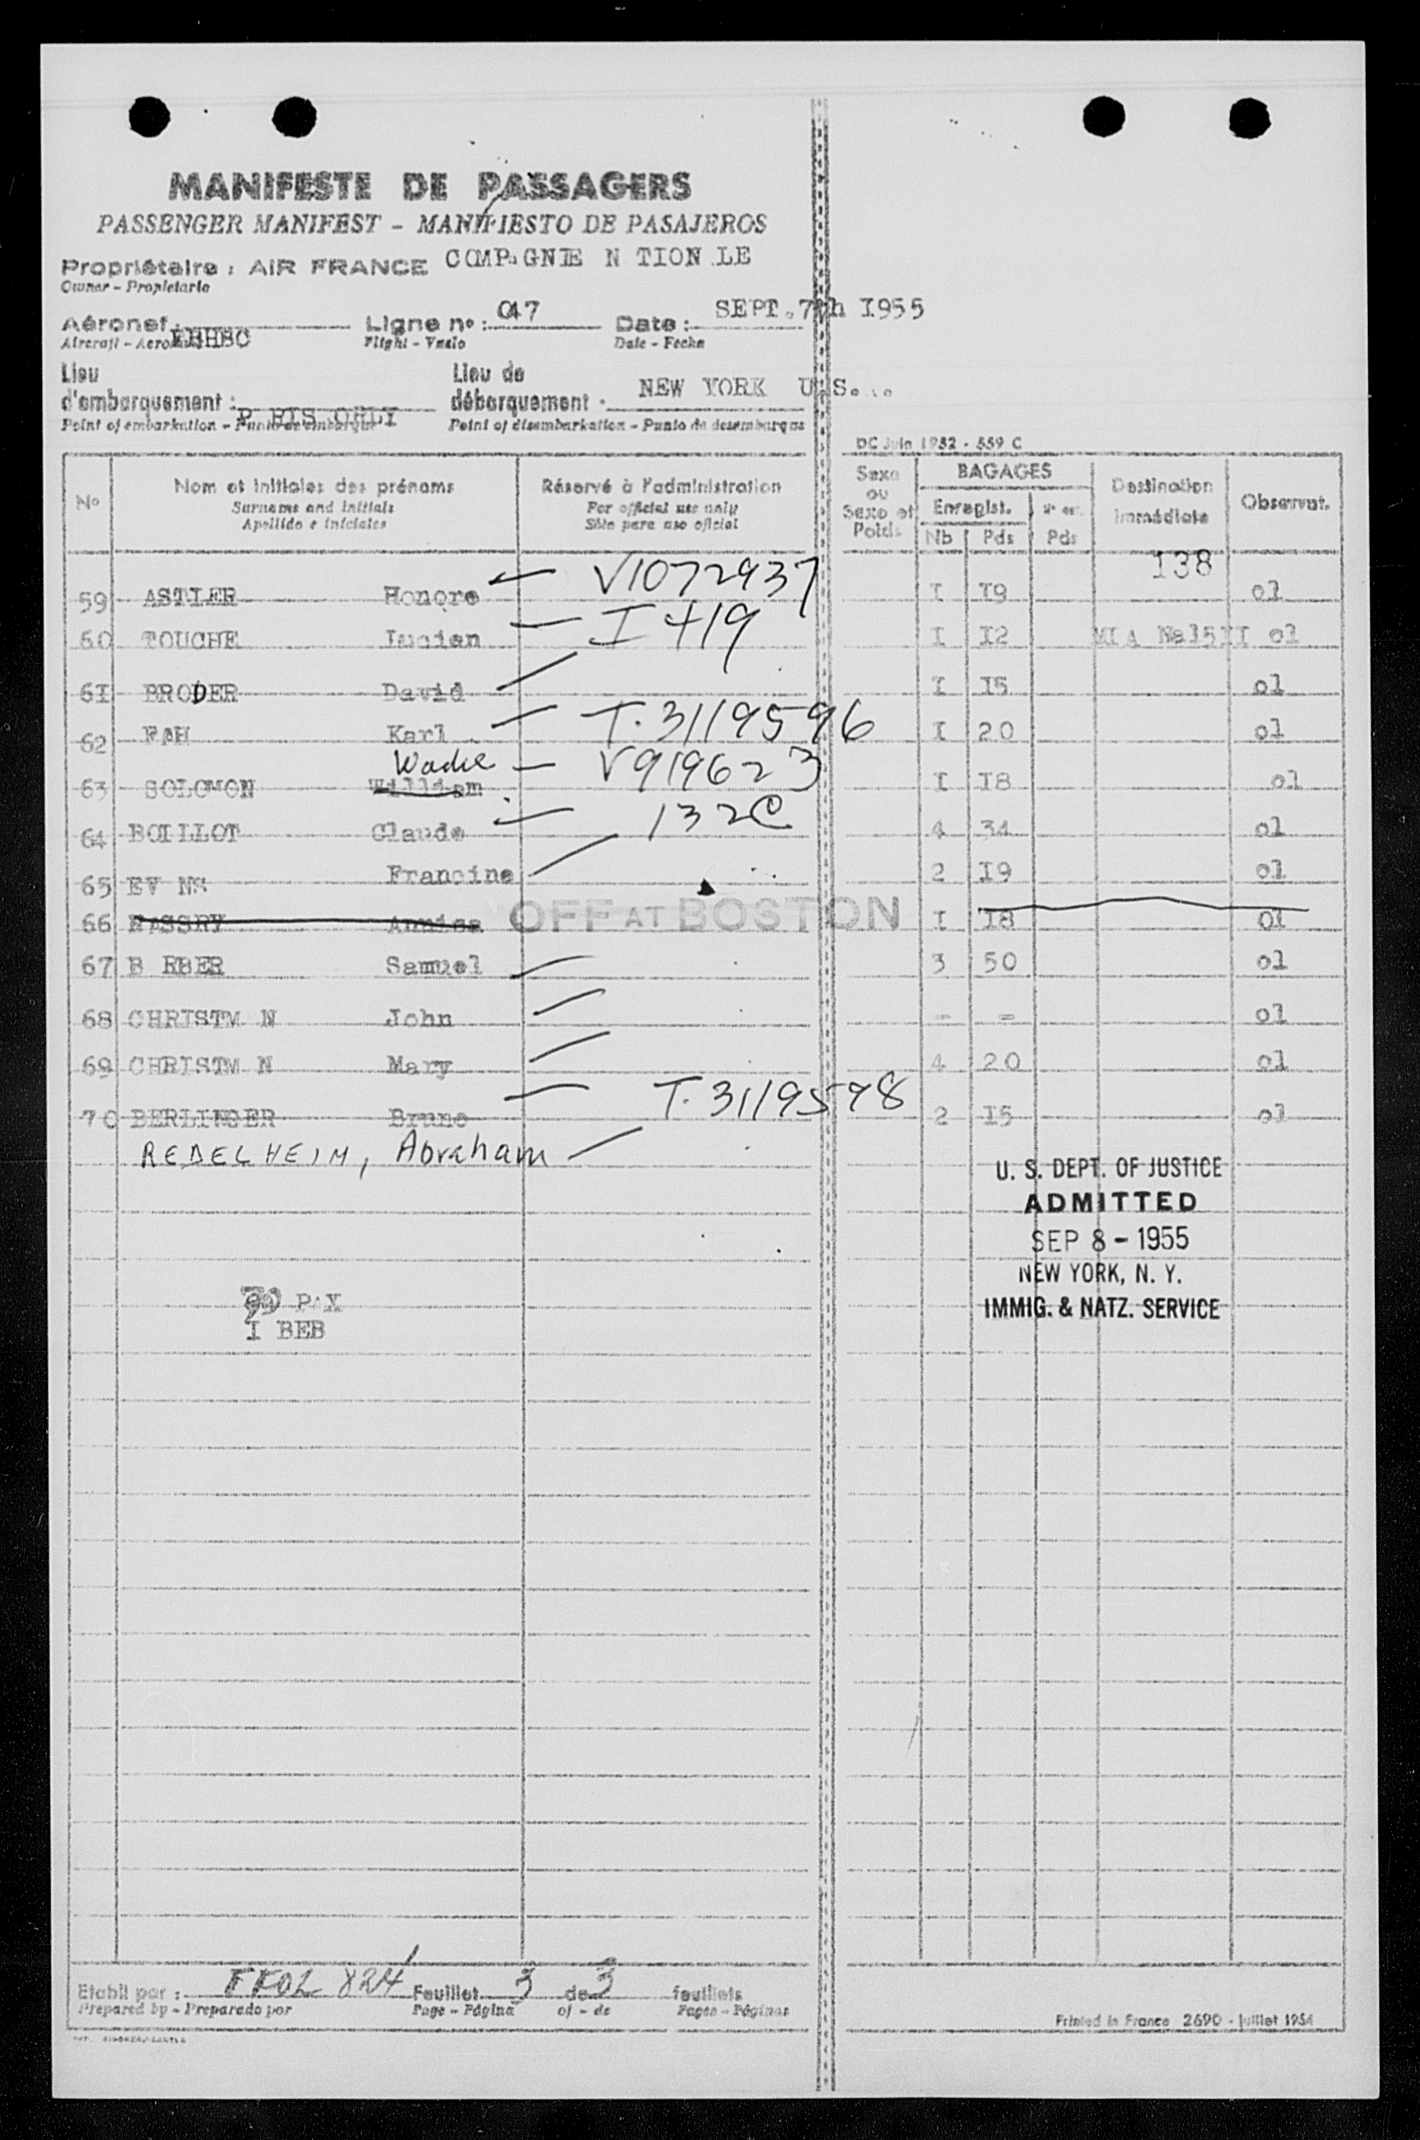 MANIFESTE DE PASSAGERS
PASSENGER MANIFEST - MANIFIESTO DE PASAJEROS
Propriétaire : AIR FRANCE COMP GNIE N TION LE
Owner - Propietario
Aéronef : Ligne nº : 047 Date : SEPT. 7th I955
Aircraft - Flight - Vuelo Date - Fecha
Lieu d'embarquement : P RIS ORLY Lieu de débarquement : NEW YORK U.S.
Point of embarkation - Point of disembarkation - Punto de desembarque
DC Juin 1952 - 559 C
Nº Nom et initiales des prénoms Réservé à l'administration Sexe ou Sexe et Poids BAGAGES Destination immédiate Observat.
Surname and initials For official use only Enregist.
Apellido e iniciales Sólo para uso oficial Nb Pds Pds
138
59 ASTIER Honore V1072937 I I9 ol
60 TOUCHE Lucien I 419 I I2 ol
6I BRODER David I I5 ol
62 FAH Karl T. 3119596 I 20 ol
Wadie
63 SOLOMON William V919623 I I8 ol
64 BOILLOT Claude 132C 4 34 ol
65 EV NS Francine 2 I9 ol
66 NASSRY Annisa OFF AT BOSTON I I8 ol
67 B RBER Samuel 3 50 ol
68 CHRISTM N John - - ol
69 CHRISTM N Mary 4 20 ol
70 BERLINGER Bruno T. 3119598 2 I5 ol
REDELHEIM, Abraham
U. S. DEPT. OF JUSTICE
ADMITTED
SEP 8 - 1955
NEW YORK, N. Y.
IMMIG. & NATZ. SERVICE
PAX
I BEB
Etabli par : Feuillet 3 de 3 feuillets
Prepared by - Preparado por Page - Página of - de Pages - Páginas
Printed in France 2690 - Juillet 1954